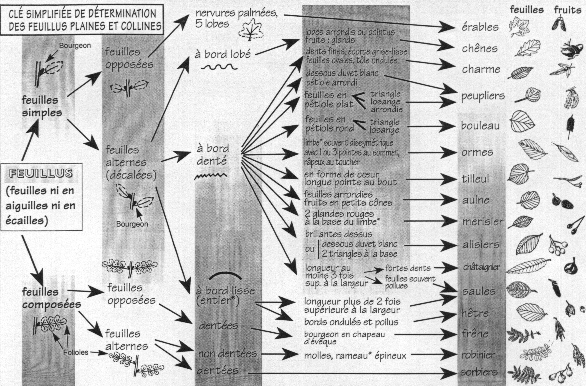 CLÉ SIMPLIFIÉE DE DÉTERMINATION
DES FEUILLUS PLAINES ET COLLINES
feuilles fruits
Bourgeon
feuilles
simples
FEUILLUS
(feuilles ni en
aiguilles ni en
écailles)
feuilles
composées
Folioles
feuilles
opposées
feuilles
alternes
(décalées)
Bourgeon
feuilles
opposées
feuilles
alternes
nervures palmées,
5 lobes
à bord lobé
à bord
denté
à bord lisse
(entier*)
dentées
non dentées
dentées
lobes arrondis ou pointus
fruits : glands
dents fines, écorce grise-lisse
feuilles ovales, tôle ondulée
dessous duvet blanc
pétiole arrondi
feuilles en
pétiole plat
triangle
losange
arrondies
feuilles en
pétiole rond
triangle
losange
limbe* souvent dissymétrique
avec 1 ou 3 pointes au sommet,
râpeux au toucher
en forme de cœur
longue pointe au bout
feuilles arrondies
fruits en petits cônes
2 glandes rouges
à la base du limbe*
brillantes dessus
ou
dessous duvet blanc
2 triangles à la base
longueur au
moins 3 fois
sup. à la largeur
fortes dents
feuilles souvent
poilues
longueur plus de 2 fois
supérieure à la largeur
bords ondulés et poilus
bourgeon en chapeau
d'évêque
molles, rameau* épineux
érables
chênes
charme
peupliers
bouleau
ormes
tilleul
aulne
merisier
alisiers
châtaignier
saules
hêtre
frêne
robinier
sorbiers